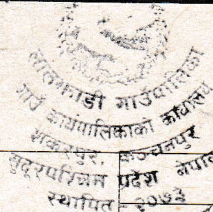 लालझाडी गाउँपालिका
गाउँ कार्यपालिकाको कार्यालय
शंकरपुर, कञ्चनपुर
सुदूरपश्चिम प्रदेश नेपाल
स्थापित २०७३